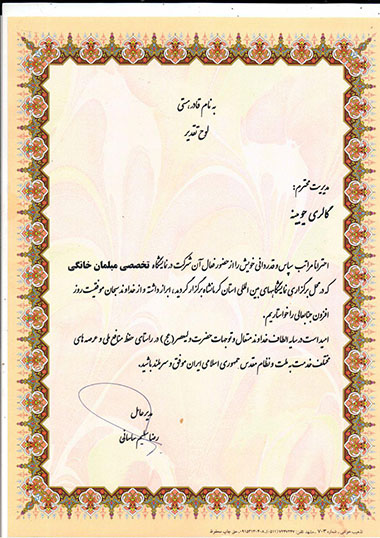 به نام قادر هستی
لوح تقدیر
مدیریت محترم:
گالری چوبینه
احتراماً مراتب سپاس و قدردانی خویش را از حضور فعال آن شرکت در نمایشگاه تخصصی مبلمان خانگی
که در محل برگزاری نمایشگاههای بین المللی استان کرمانشاه برگزار گردید، ابراز داشته و از خداوند سبحان موفقیت روز
افزون جنابعالی را خواستاریم.
امید است در سایه الطاف خداوند متعال و توجهات حضرت ولیعصر (عج) در راستای حفظ منافع ملی و عرصه های
مختلف خدمت به ملت و نظام مقدس جمهوری اسلامی ایران موفق و سربلند باشید.
مدیر عامل
رضا سلیم ساسانی